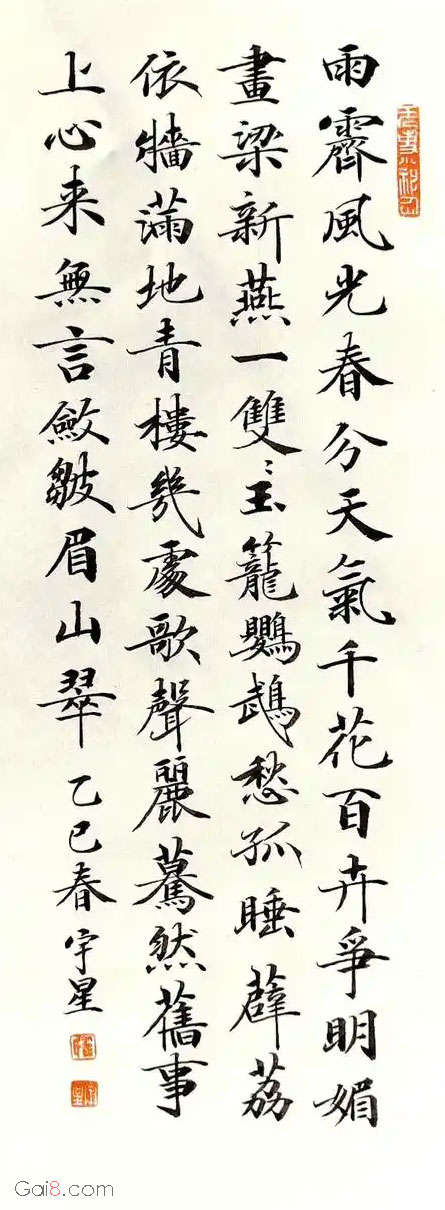 雨霽風光春分天氣千花百卉爭明媚
畫梁新燕一雙〻玉籠鸚鵡愁孤睡薜荔
依牆滿地青樓幾處歌聲麗驀然舊事
上心來無言斂皺眉山翠乙巳春宇星
Gai8.com